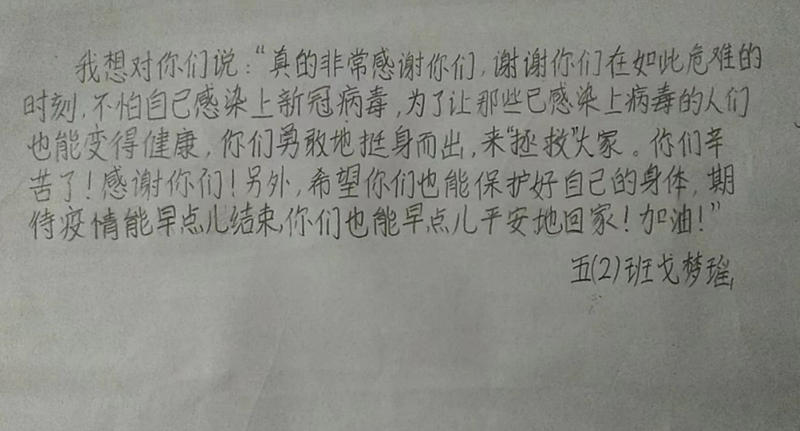 我想对你们说：“真的非常感谢你们，谢谢你们在如此危难的
时刻，不怕自己感染上新冠病毒，为了让那些已感染上病毒的人们
也能变得健康，你们勇敢地挺身而出，来“拯救”大家。你们辛
苦了！感谢你们！另外，希望你们也能保护好自己的身体，期
待疫情能早点儿结束，你们也能早点儿平安地回家！加油！”
五(2)班戈梦瑶